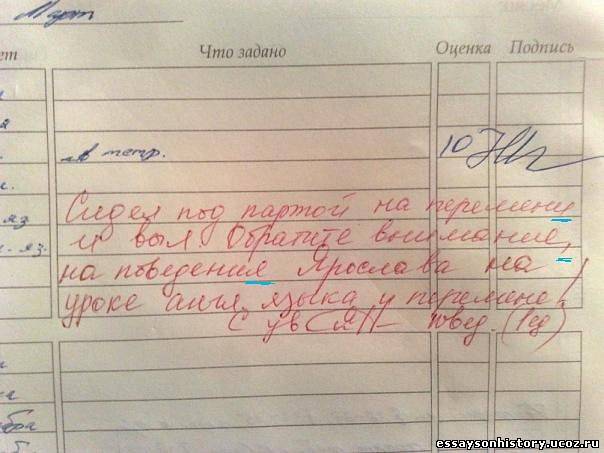 Март
ет Что задано Оценка Подпись
в тетр. 10
Сидел под партой на перемени
яз
и выл Обратите внимание,
яз.
на поведения Ярослава на
уроке англ. языка и перемене!
С ув повед.
бра
essaysonhistory.ucoz.ru